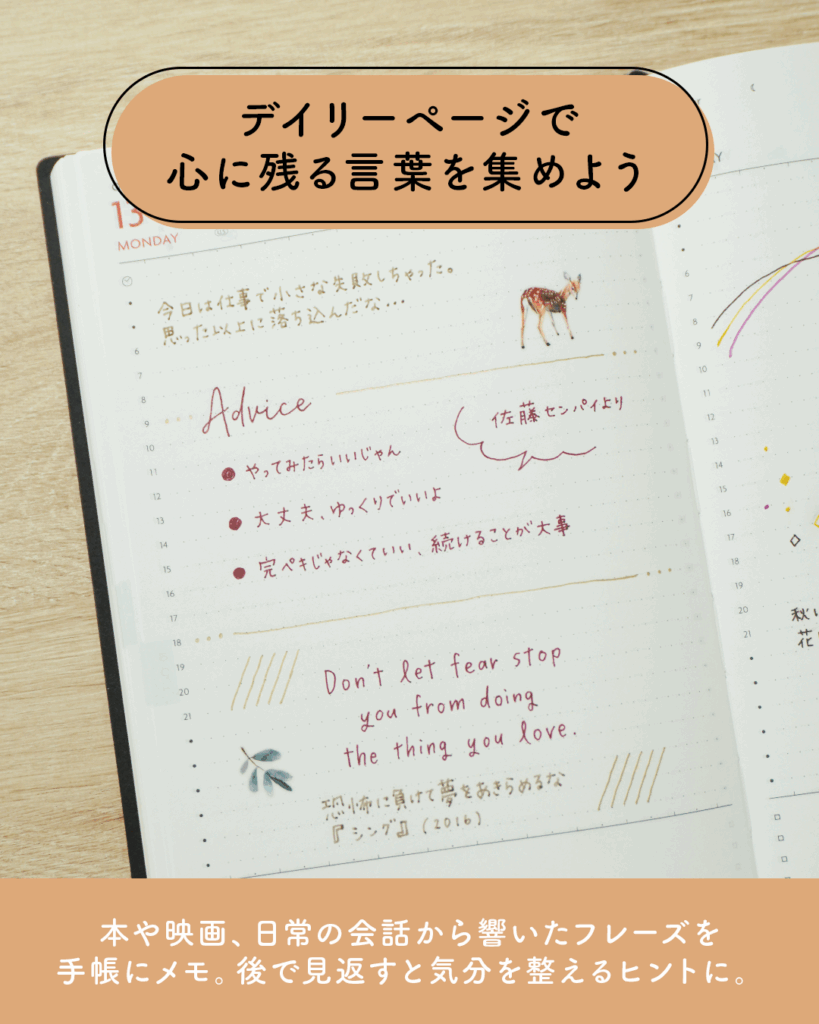 デイリーページで
心に残る言葉を集めよう
13
MONDAY
今日は仕事で小さな失敗しちゃった。
思った以上に落ち込んだな...
Advice
佐藤センパイより
やってみたらいいじゃん
大丈夫、ゆっくりでいいよ
完ペキじゃなくていい、続けることが大事
Don't let fear stop
you from doing
the thing you love.
恐怖に負けて夢をあきらめるな
『シング』(2016)
6
7
8
9
10
11
12
13
14
15
16
17
18
19
20
21
Y
6
7
8
9
10
11
12
13
14
15
16
17
18
19
20
21
秋
花
本や映画、日常の会話から響いたフレーズを
手帳にメモ。後で見返すと気分を整えるヒントに。